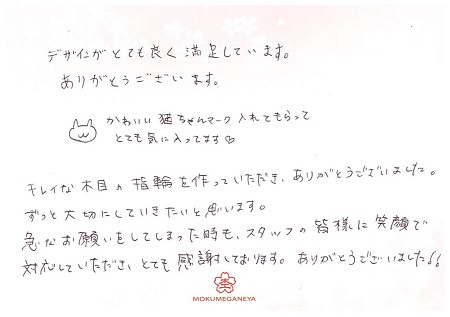 デザインがとても良く満足しています。
ありがとうございます。
かわいい猫ちゃんマーク入れてもらって
とても気に入ってます♡
キレイな木目の指輪を作っていただき、ありがとうございました。
ずっと大切にしていきたいと思います。
急なお願いをしてしまった時も、スタッフの皆様に笑顔で
対応していただき、とても感謝しております。ありがとうございました!!
MOKUMEGANEYA